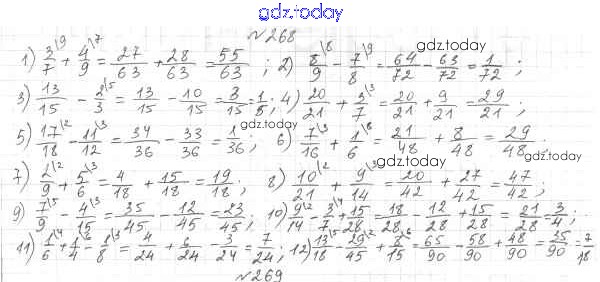 gdz.today
№268
1) 3/7 \9 + 4/9 \7 = 27/63 + 28/63 = 55/63 ; 2) 8/9 \8 - 7/8 \9 = 64/72 - 63/72 = 1/72 ; gdz.today
3) 13/15 - 2/3 \5 = 13/15 - 10/15 = 3/15 = 1/5 ; 4) 20/21 + 3/7 \3 = 20/21 + 9/21 = 29/21 ; gdz.today
5) 17/18 \2 - 11/12 \3 = 34/36 - 33/36 = 1/36 ; 6) 7/16 \3 + 1/6 \8 = 21/48 + 8/48 = 29/48 . gdz.today gdz.today
7) 2/9 \2 + 5/6 \3 = 4/18 + 15/18 = 19/18 ; 8) 10/21 \2 + 9/14 \3 = 20/42 + 27/42 = 47/42 ;
9) 7/9 \5 - 4/15 \3 = 35/45 - 12/45 = 23/45 ; 10) 9/14 \2 - 3/7 \4 + 15/28 = 18/28 - 12/28 + 15/28 = 21/28 = 3/4 ;
11) 1/6 \4 + 1/4 \6 - 1/8 \3 = 4/24 + 6/24 - 3/24 = 7/24 ; 12) 13/18 \5 - 29/45 \2 + 8/15 \6 = 65/90 - 58/90 + 48/90 = 35/90 = 7/18
№269